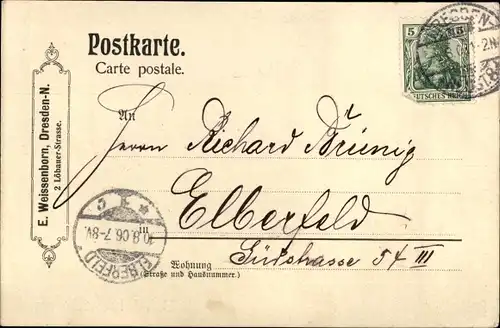 Postkarte.
Carte postale.
E. Weissenborn, Dresden-N.
2 Löbauer-Strasse.
5
DEUTSCHES REICH
DRESDEN-
An
Herrn Richard Brünig
in
Elberfeld
Südstrasse 54 III
Wohnung
(Straße und Hausnummer.)
* *  c
10.8.06.7-8V.
ELBERFELD